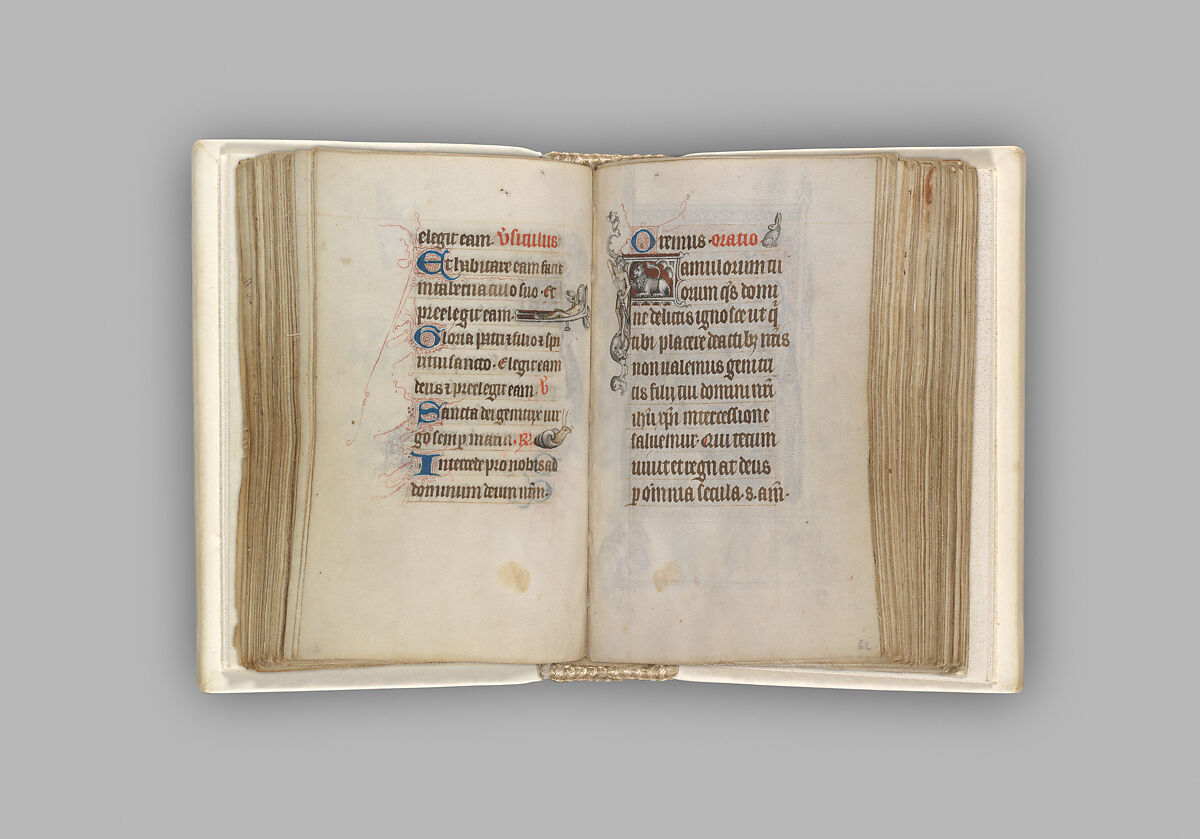 elegit eam. v̄siculus
Et habitare eam facit
in tabernaculo suo. Et
preelegit eam.
Gloria patri ⁊ filio ⁊ spi
ritui sancto. Elegit eam
deus ⁊ preelegit eam. v̄
Sancta dei genitrix uir
go semp maria. R̄
Intercede pro nobis ad
dominum deum nr̄m.
Oremus. oratio
Famulorum tu
orum qs̄ domi
ne delictis ignosce ut q̄
tibi placere de actibꝫ nr̄is
non ualemus geniti
cis filij tui domini nr̄i
ihū xp̄i intercessione
saluemur. Qui tecum
uiuit et regnat deus
ꝑ omnia secula. s. am̄.